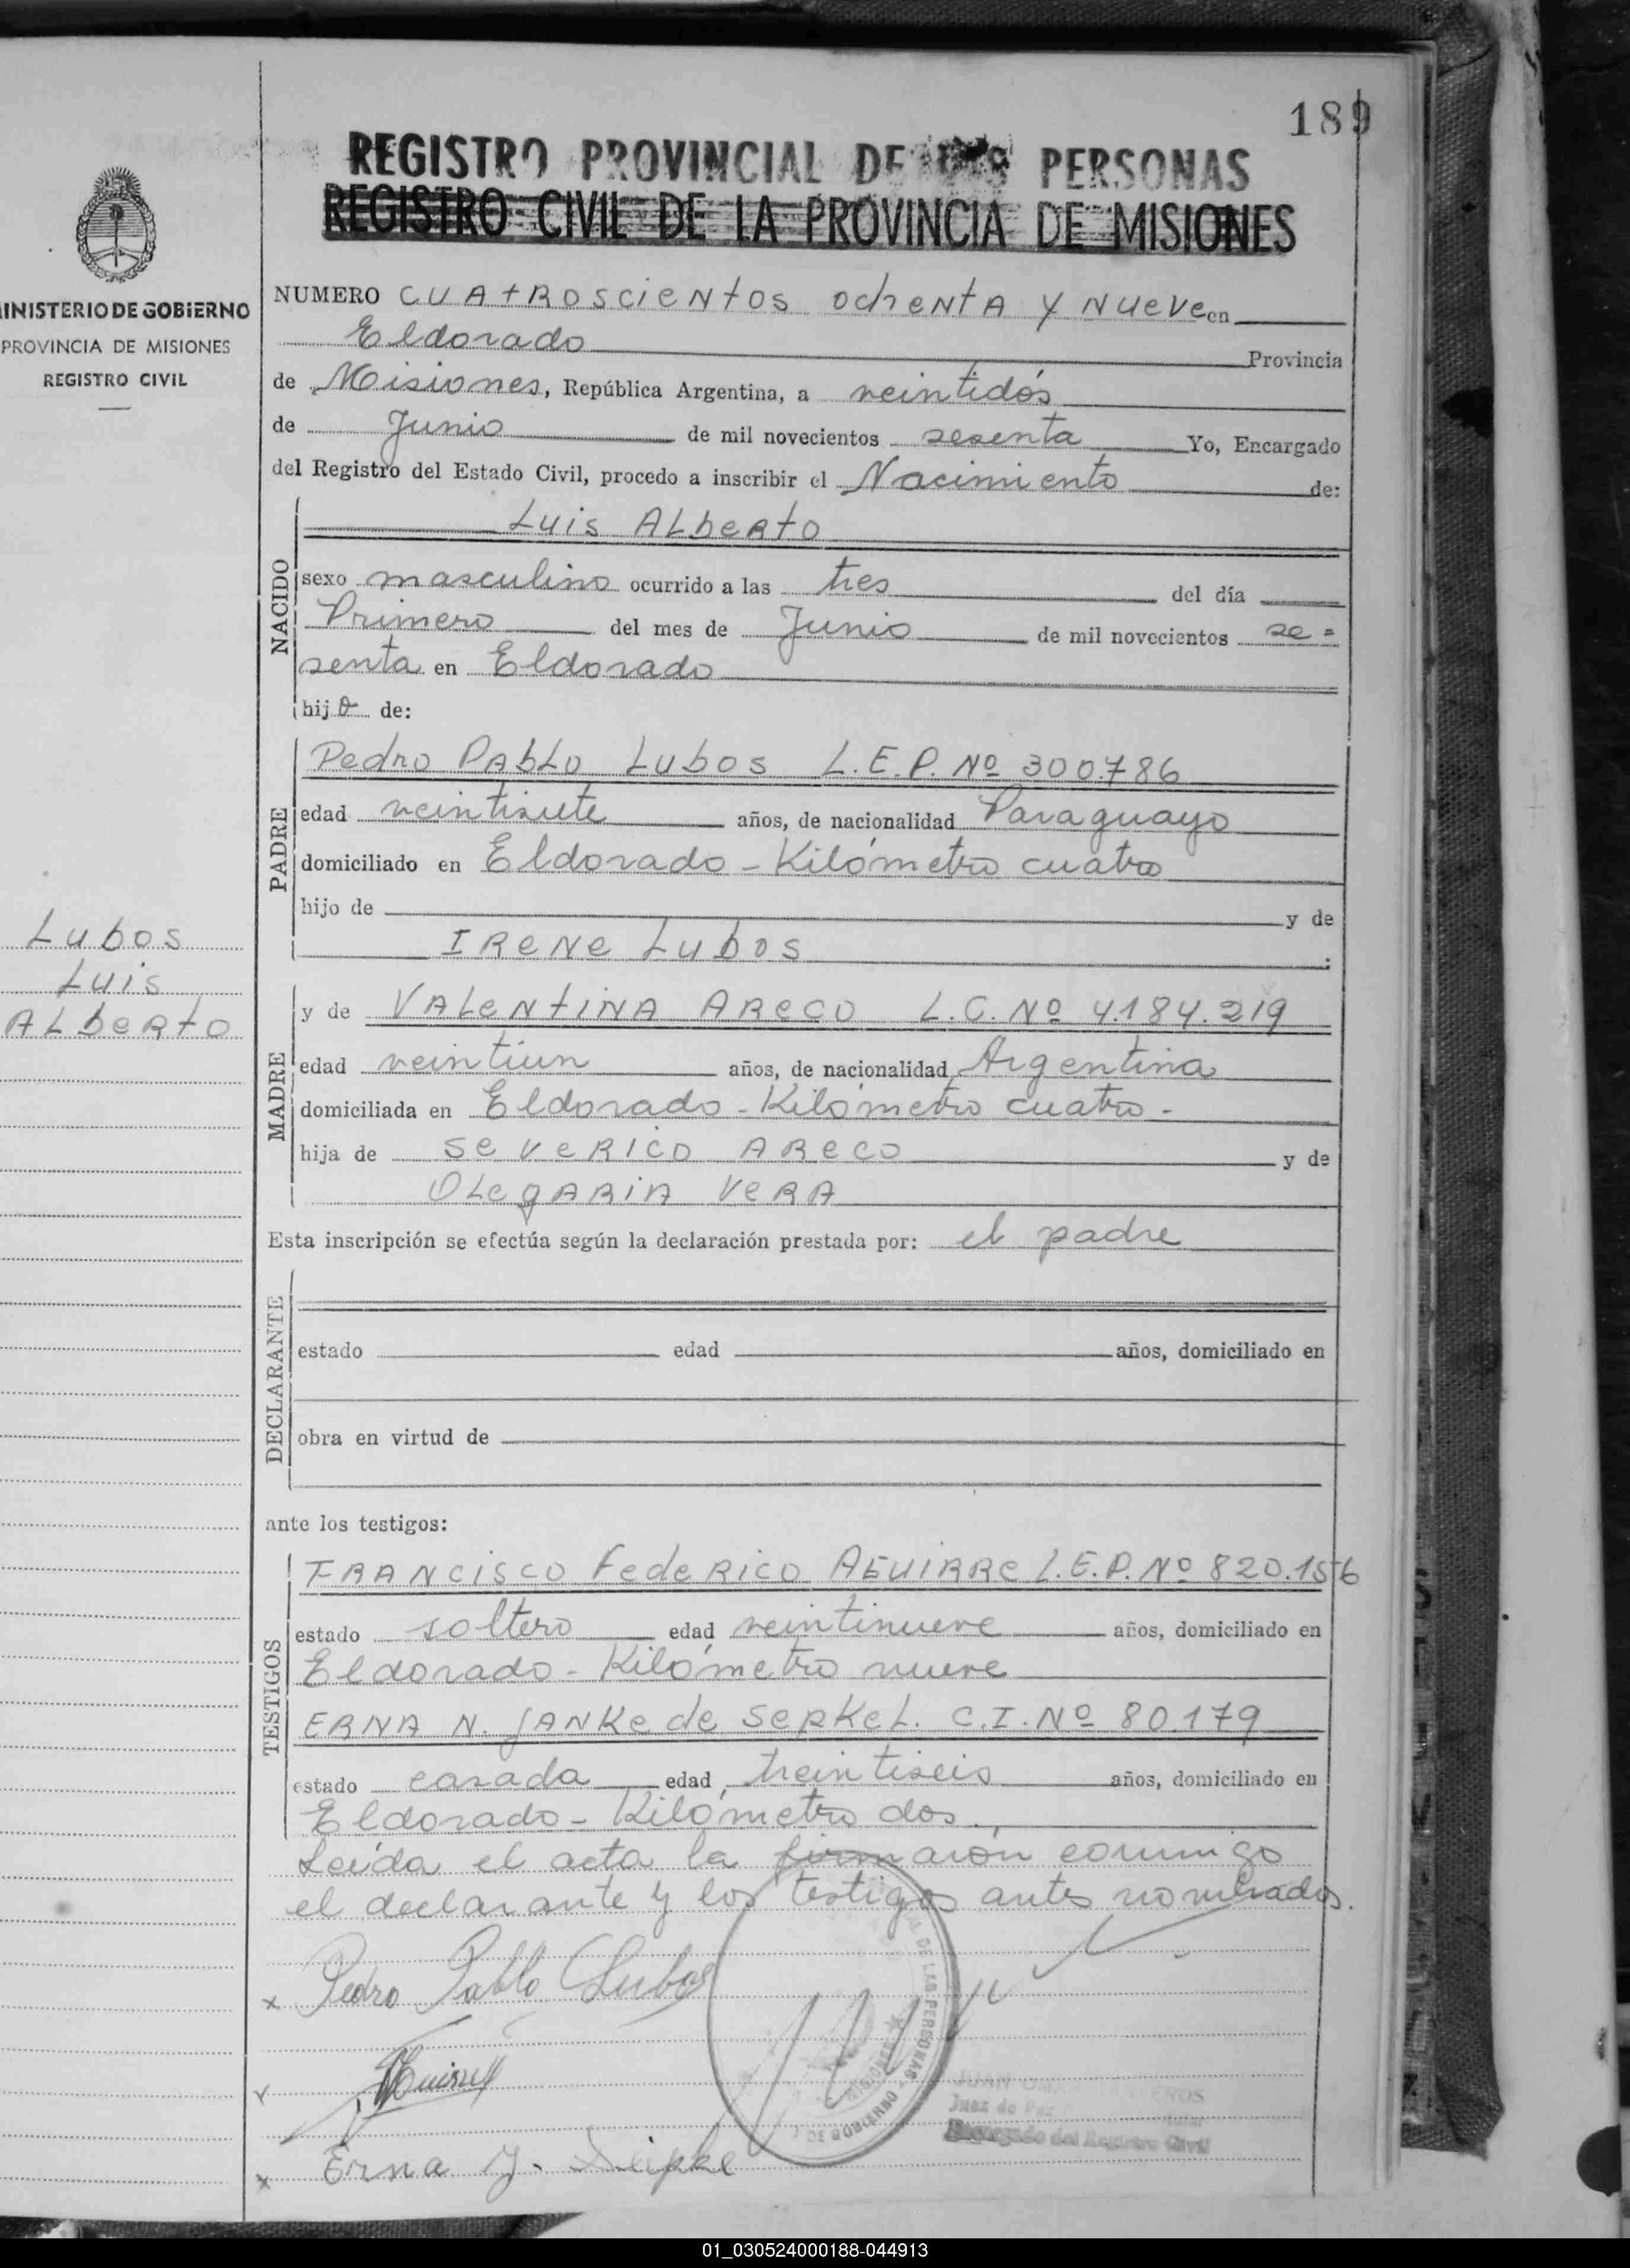 189
REGISTRO PROVINCIAL DE LAS PERSONAS
REGISTRO CIVIL DE LA PROVINCIA DE MISIONES
MINISTERIO DE GOBIERNO
PROVINCIA DE MISIONES
REGISTRO CIVIL
NUMERO CUATROSCIENTOS OCHENTA Y NUEVE en
Eldorado Provincia
de Misiones, República Argentina, a veintidós
de Junio de mil novecientos sesenta Yo, Encargado
del Registro del Estado Civil, procedo a inscribir el Nacimiento de:
NACIDO
Luis ALberto
sexo masculino ocurrido a las tres del día
Primero del mes de Junio de mil novecientos se=
senta en Eldorado
hijo de:
PADRE
Pedro PAbLo Lubos L.E.P. Nº 300.786
edad veintisiete años, de nacionalidad Paraguayo
domiciliado en Eldorado - Kilómetro cuatro
hijo de y de
IRENE Lubos
Lubos
Luis
ALberto
MADRE
y de VALENTINA ARECO L.C. Nº 4.184.219
edad veintiun años, de nacionalidad Argentina
domiciliada en Eldorado - Kilómetro cuatro -
hija de SEVERICO ARECO y de
OLEGARIA VERA
Esta inscripción se efectúa según la declaración prestada por: el padre
DECLARANTE
estado edad años, domiciliado en
obra en virtud de
ante los testigos:
TESTIGOS
FRANCISCO FEDERICO AGUIRRE L.E.P. Nº 820.156
estado soltero edad veintinueve años, domiciliado en
Eldorado - Kilómetro nueve
ERNA N. JANKE de SEPKEL. C.I. Nº 80.179
estado casada edad treintiseis años, domiciliado en
Eldorado - Kilómetro dos
Leída el acta la firmaron conmigo
el declarante y los testigos antes nombrados.
x Pedro Pablo Lubos
DE LAS PERSONAS
MISIONES
DE GOBIERNO
JUAN
Juez de Paz
Encargado del Registro Civil
x Erna J.
01_030524000188-044913